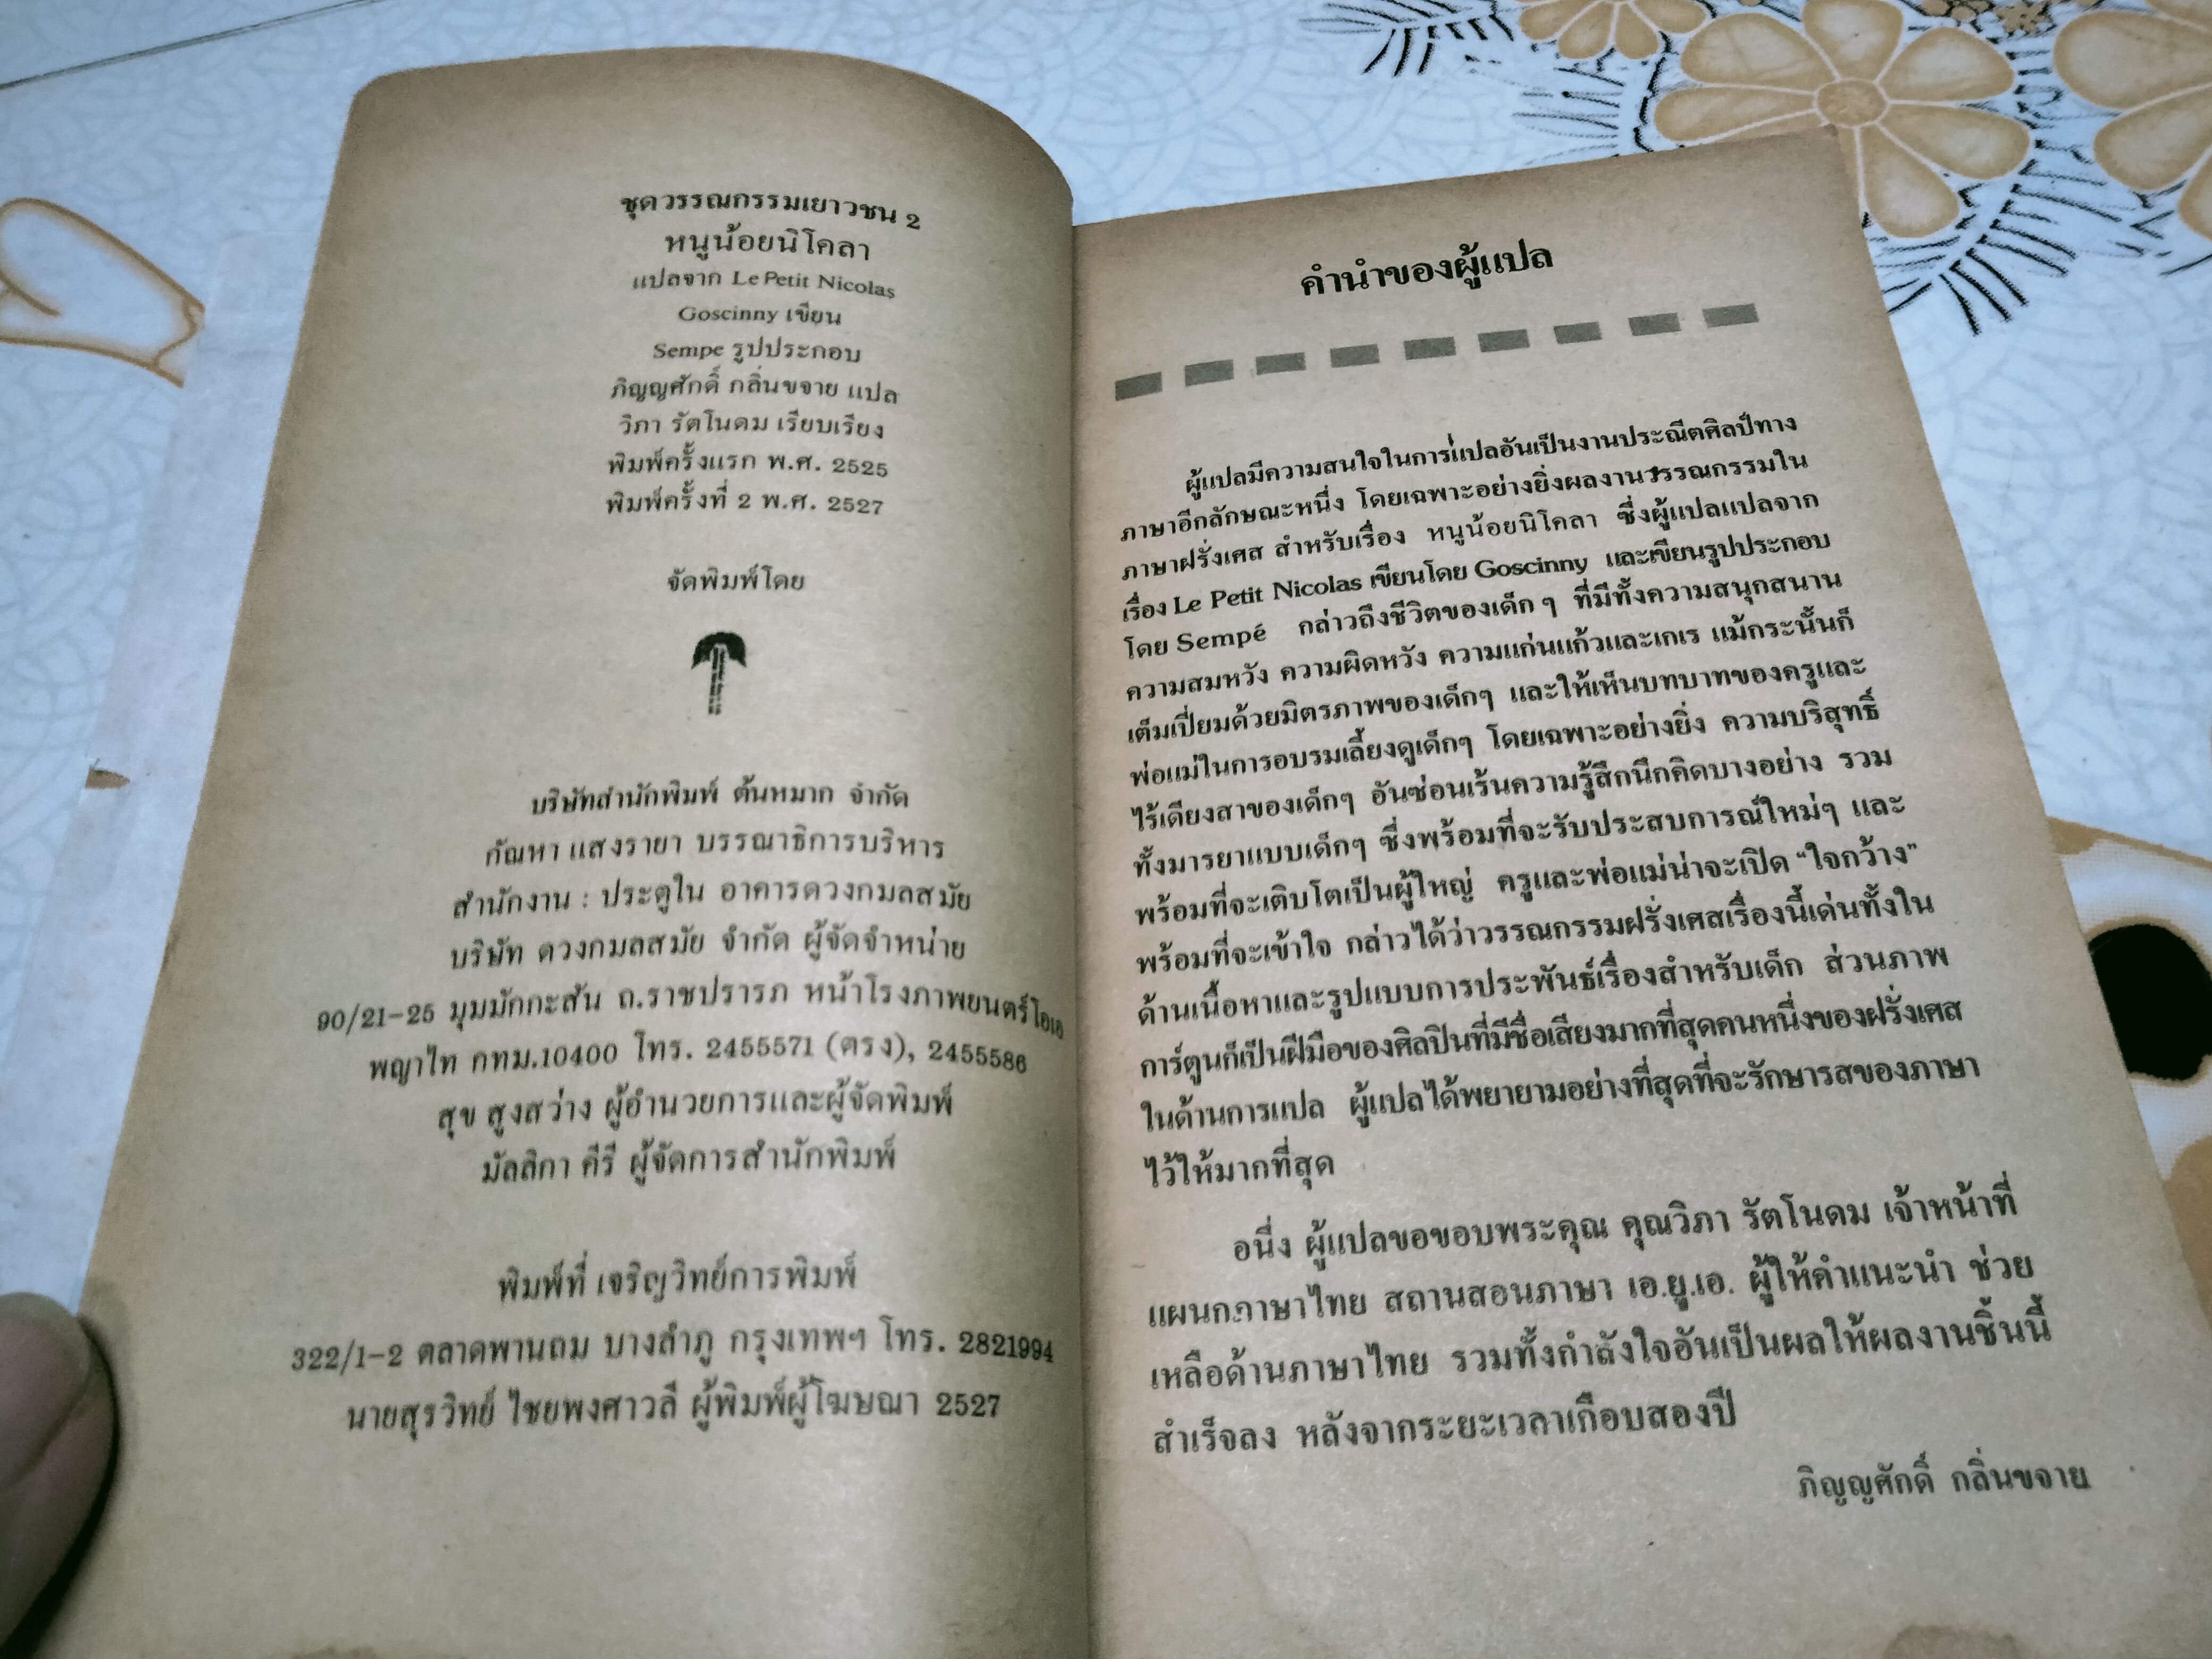 ชุดวรรณกรรมเยาวชน 2
หนูน้อยนิโคลา
แปลจาก Le Petit Nicolas
Goscinny เขียน
Sempe รูปประกอบ
ภิญญศักดิ์ กลิ่นขจาย แปล
วิภา รัตโนดม เรียบเรียง
พิมพ์ครั้งแรก พ.ศ. 2525
พิมพ์ครั้งที่ 2 พ.ศ. 2527
จัดพิมพ์โดย
บริษัทสำนักพิมพ์ ต้นหมาก จำกัด
กัณหา แสงรายา บรรณาธิการบริหาร
สำนักงาน : ประตูใน อาคารดวงกมลสมัย
บริษัท ดวงกมลสมัย จำกัด ผู้จัดจำหน่าย
90/21-25 มุมมักกะสัน ถ.ราชปรารภ หน้าโรงภาพยนตร์โอเอ
พญาไท กทม.10400 โทร. 2455571 (ตรง), 2455586
สุข สูงสว่าง ผู้อำนวยการและผู้จัดพิมพ์
มัลลิกา คีรี ผู้จัดการสำนักพิมพ์
พิมพ์ที่ เจริญวิทย์การพิมพ์
322/1-2 ตลาดพานถม บางลำภู กรุงเทพฯ โทร. 2821994
นายสุรวิทย์ ไชยพงศาวลี ผู้พิมพ์ผู้โฆษณา 2527
คำนำของผู้แปล
ผู้แปลมีความสนใจในการแปลอันเป็นงานประณีตศิลป์ทาง
ภาษาอีกลักษณะหนึ่ง โดยเฉพาะอย่างยิ่งผลงานวรรณกรรมใน
ภาษาฝรั่งเศส สำหรับเรื่อง หนูน้อยนิโคลา ซึ่งผู้แปลแปลจาก
เรื่อง Le Petit Nicolas เขียนโดย Goscinny และเขียนรูปประกอบ
โดย Sempé กล่าวถึงชีวิตของเด็ก ๆ ที่มีทั้งความสนุกสนาน
ความสมหวัง ความผิดหวัง ความแก่นแก้วและเกเร แม้กระนั้นก็
เต็มเปี่ยมด้วยมิตรภาพของเด็กๆ และให้เห็นบทบาทของครูและ
พ่อแม่ในการอบรมเลี้ยงดูเด็กๆ โดยเฉพาะอย่างยิ่ง ความบริสุทธิ์
ไร้เดียงสาของเด็กๆ อันซ่อนเร้นความรู้สึกนึกคิดบางอย่าง รวม
ทั้งมารยาแบบเด็กๆ ซึ่งพร้อมที่จะรับประสบการณ์ใหม่ๆ และ
พร้อมที่จะเติบโตเป็นผู้ใหญ่ ครูและพ่อแม่น่าจะเปิด “ใจกว้าง”
พร้อมที่จะเข้าใจ กล่าวได้ว่าวรรณกรรมฝรั่งเศสเรื่องนี้เด่นทั้งใน
ด้านเนื้อหาและรูปแบบการประพันธ์เรื่องสำหรับเด็ก ส่วนภาพ
การ์ตูนก็เป็นฝีมือของศิลปินที่มีชื่อเสียงมากที่สุดคนหนึ่งของฝรั่งเศส
ในด้านการแปล ผู้แปลได้พยายามอย่างที่สุดที่จะรักษารสของภาษา
ไว้ให้มากที่สุด
อนึ่ง ผู้แปลขอขอบพระคุณ คุณวิภา รัตโนดม เจ้าหน้าที่
แผนกภาษาไทย สถานสอนภาษา เอ.ยู.เอ. ผู้ให้คำแนะนำ ช่วย
เหลือด้านภาษาไทย รวมทั้งกำลังใจอันเป็นผลให้ผลงานชิ้นนี้
สำเร็จลง หลังจากระยะเวลาเกือบสองปี
ภิญญศักดิ์ กลิ่นขจาย